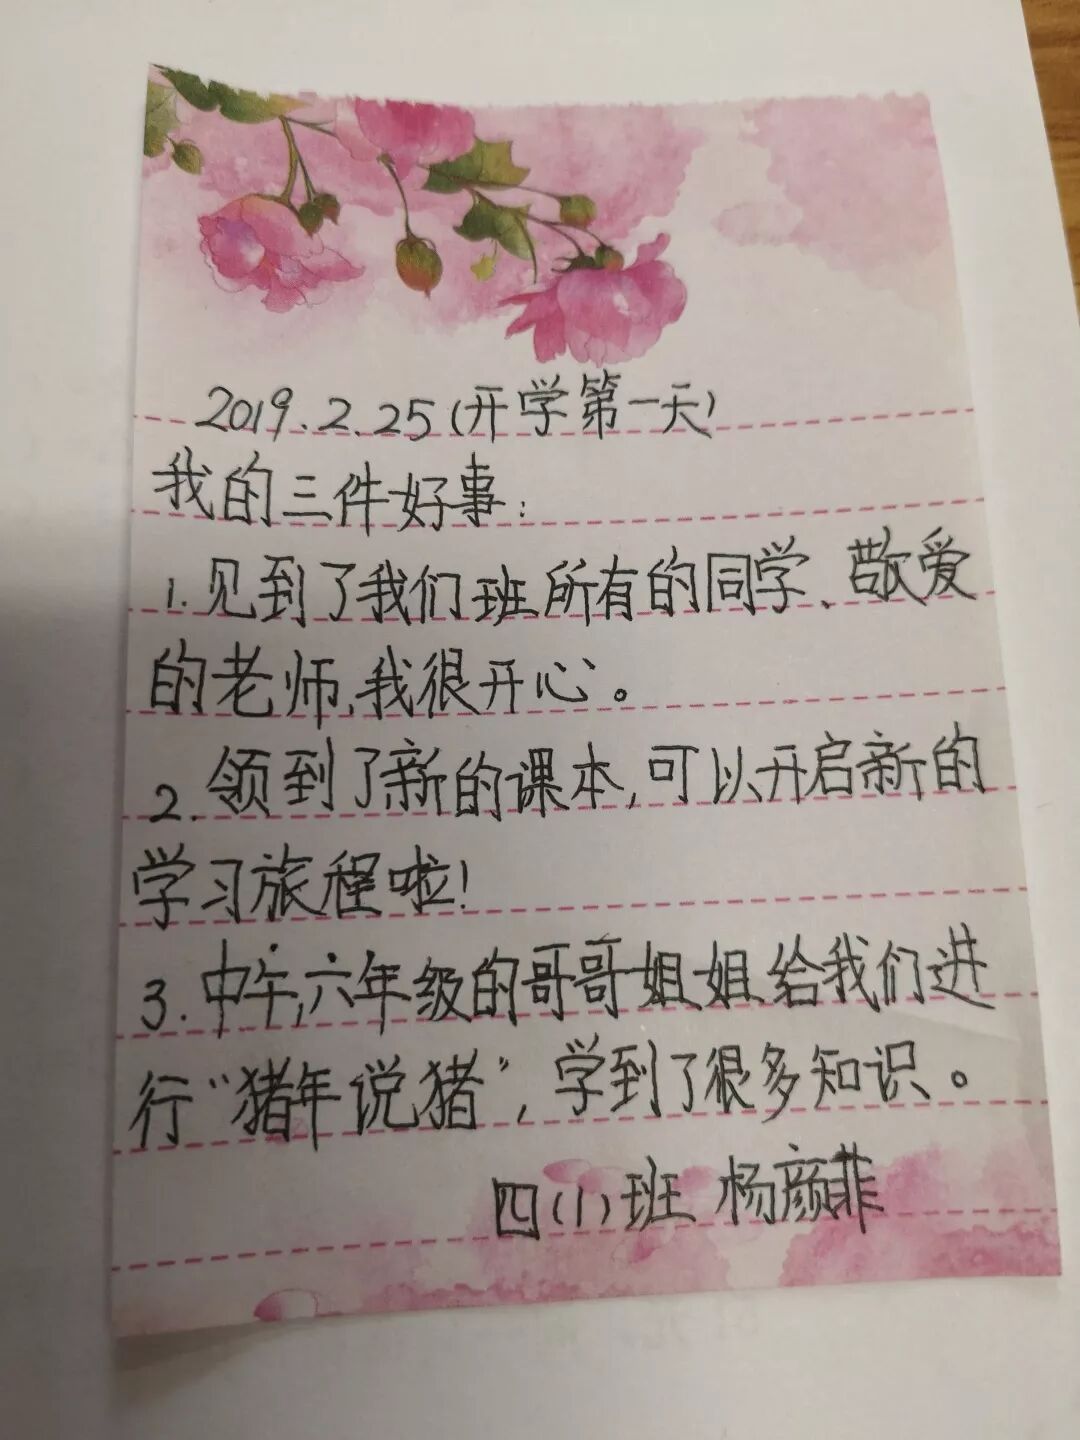 2019.2.25(开学第一天)
我的三件好事:
1.见到了我们班所有的同学、敬爱
的老师,我很开心。
2.领到了新的课本,可以开启新的
学习旅程啦!
3.中午,六年级的哥哥姐姐给我们进
行“猪年说猪”,学到了很多知识。
四(1)班 杨颜菲